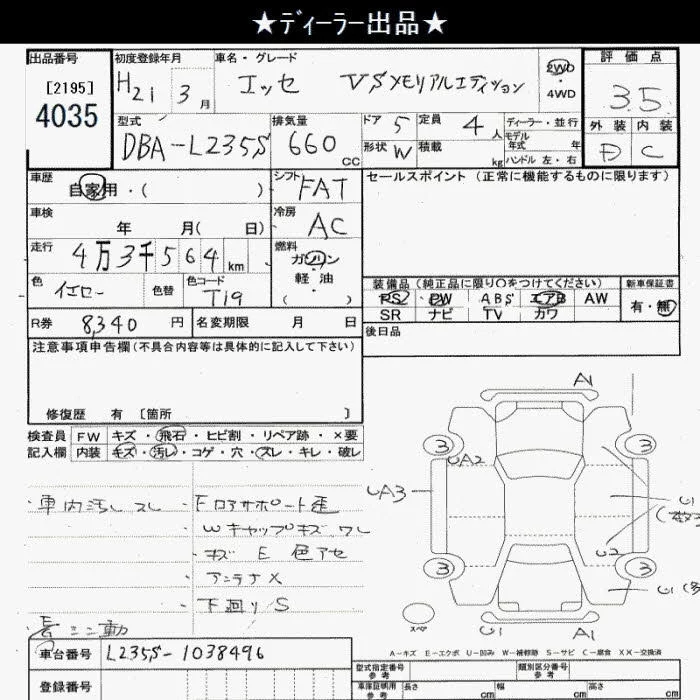 ★ディーラー出品★
出品番号 初度登録年月 車名・グレード 評価点
[2195] H21 3月 エッセ VSメモリアルエディション 2WD・4WD 3.5
4035 型式 排気量 ドア 5 定員 4人 ディーラー・並行 外装 内装
DBA-L235S 660cc 形状 W 積載 kg モデル年式 年 D C
ハンドル 左・右
車歴 シフト FAT セールスポイント (正常に機能するものに限ります)
自家用・( )
車検 冷房 AC
年 月( 日)
走行 燃料
4万3千564km ガソリン
軽・油
( )
色 色替 色コード 装備品 (純正品に限り○をつけてください) 新車保証書
イエロー T19 PS PW ABS エアB AW 有・無
SR ナビ TV カワ
R券 8,340円 名変期限 月 日 後日品
注意事項申告欄(不具合内容等は具体的に記入して下さい)
修復歴 有 〔箇所 〕
検査員 FW キズ・飛石・ヒビ割・リペア跡・×要
記入欄 内装 キズ・汚レ・コゲ・穴・スレ・キレ・破レ
A1
3 3
UA2
UA3 U1
U2
3 3
U1
スペア U1 A1
・車内汚レスレ ・Fロアサポート歪
・Wキャップキズワレ
・キズ E 色アセ
・アンテナX
・下廻りS
A-キズ E-エクボ U-凹み W-補修跡 S-サビ C-腐食 XX-交換済
車台番号 L235S-1038496 型式指定番号 参考 類別区分番号 参考
登録番号 車庫証明用 参考 長さ cm 幅 cm 高さ cm